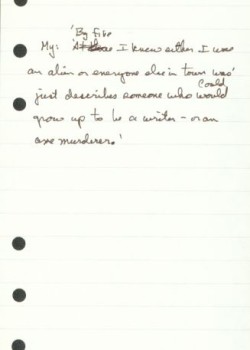 'By five
My: I knew either I was
an alien or everyone else in town was'
could
just describes someone who would
grow up to be a writer – or an
axe murderer.'